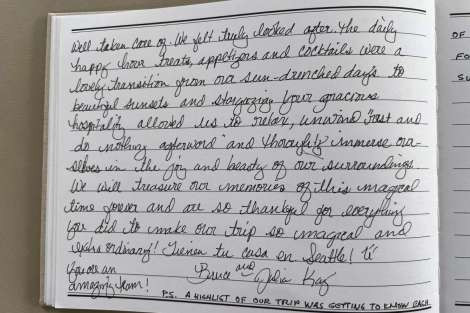 well taken care of. We felt truly looked after. The daily
happy hour treats, appetizers and cocktails were a
lovely transition from our sun-drenched days to
beautiful sunsets and stargazing. Your gracious
hospitality allowed us to relax, unwind, rest and
do nothing afterword and thoroughly immerse our-
selves in the joy and beauty of our surroundings.
We will treasure our memories of this magical
time forever and are so thankful for everything
you did to make our trip so magical and
extra ordinary! Tienen tu casa en Seattle!
You are an
amazing team!
Bruce and Julia
P.S. A HIGHLIST OF OUR TRIP WAS GETTING TO KNOW EACH
OF
FO
SU